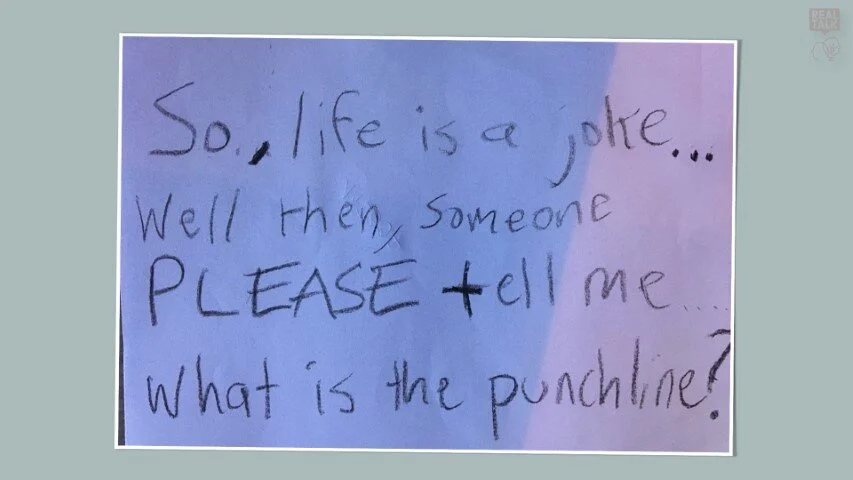 So., life is a joke...
Well then, someone
PLEASE tell me....
what is the punchline?
REAL
TALK